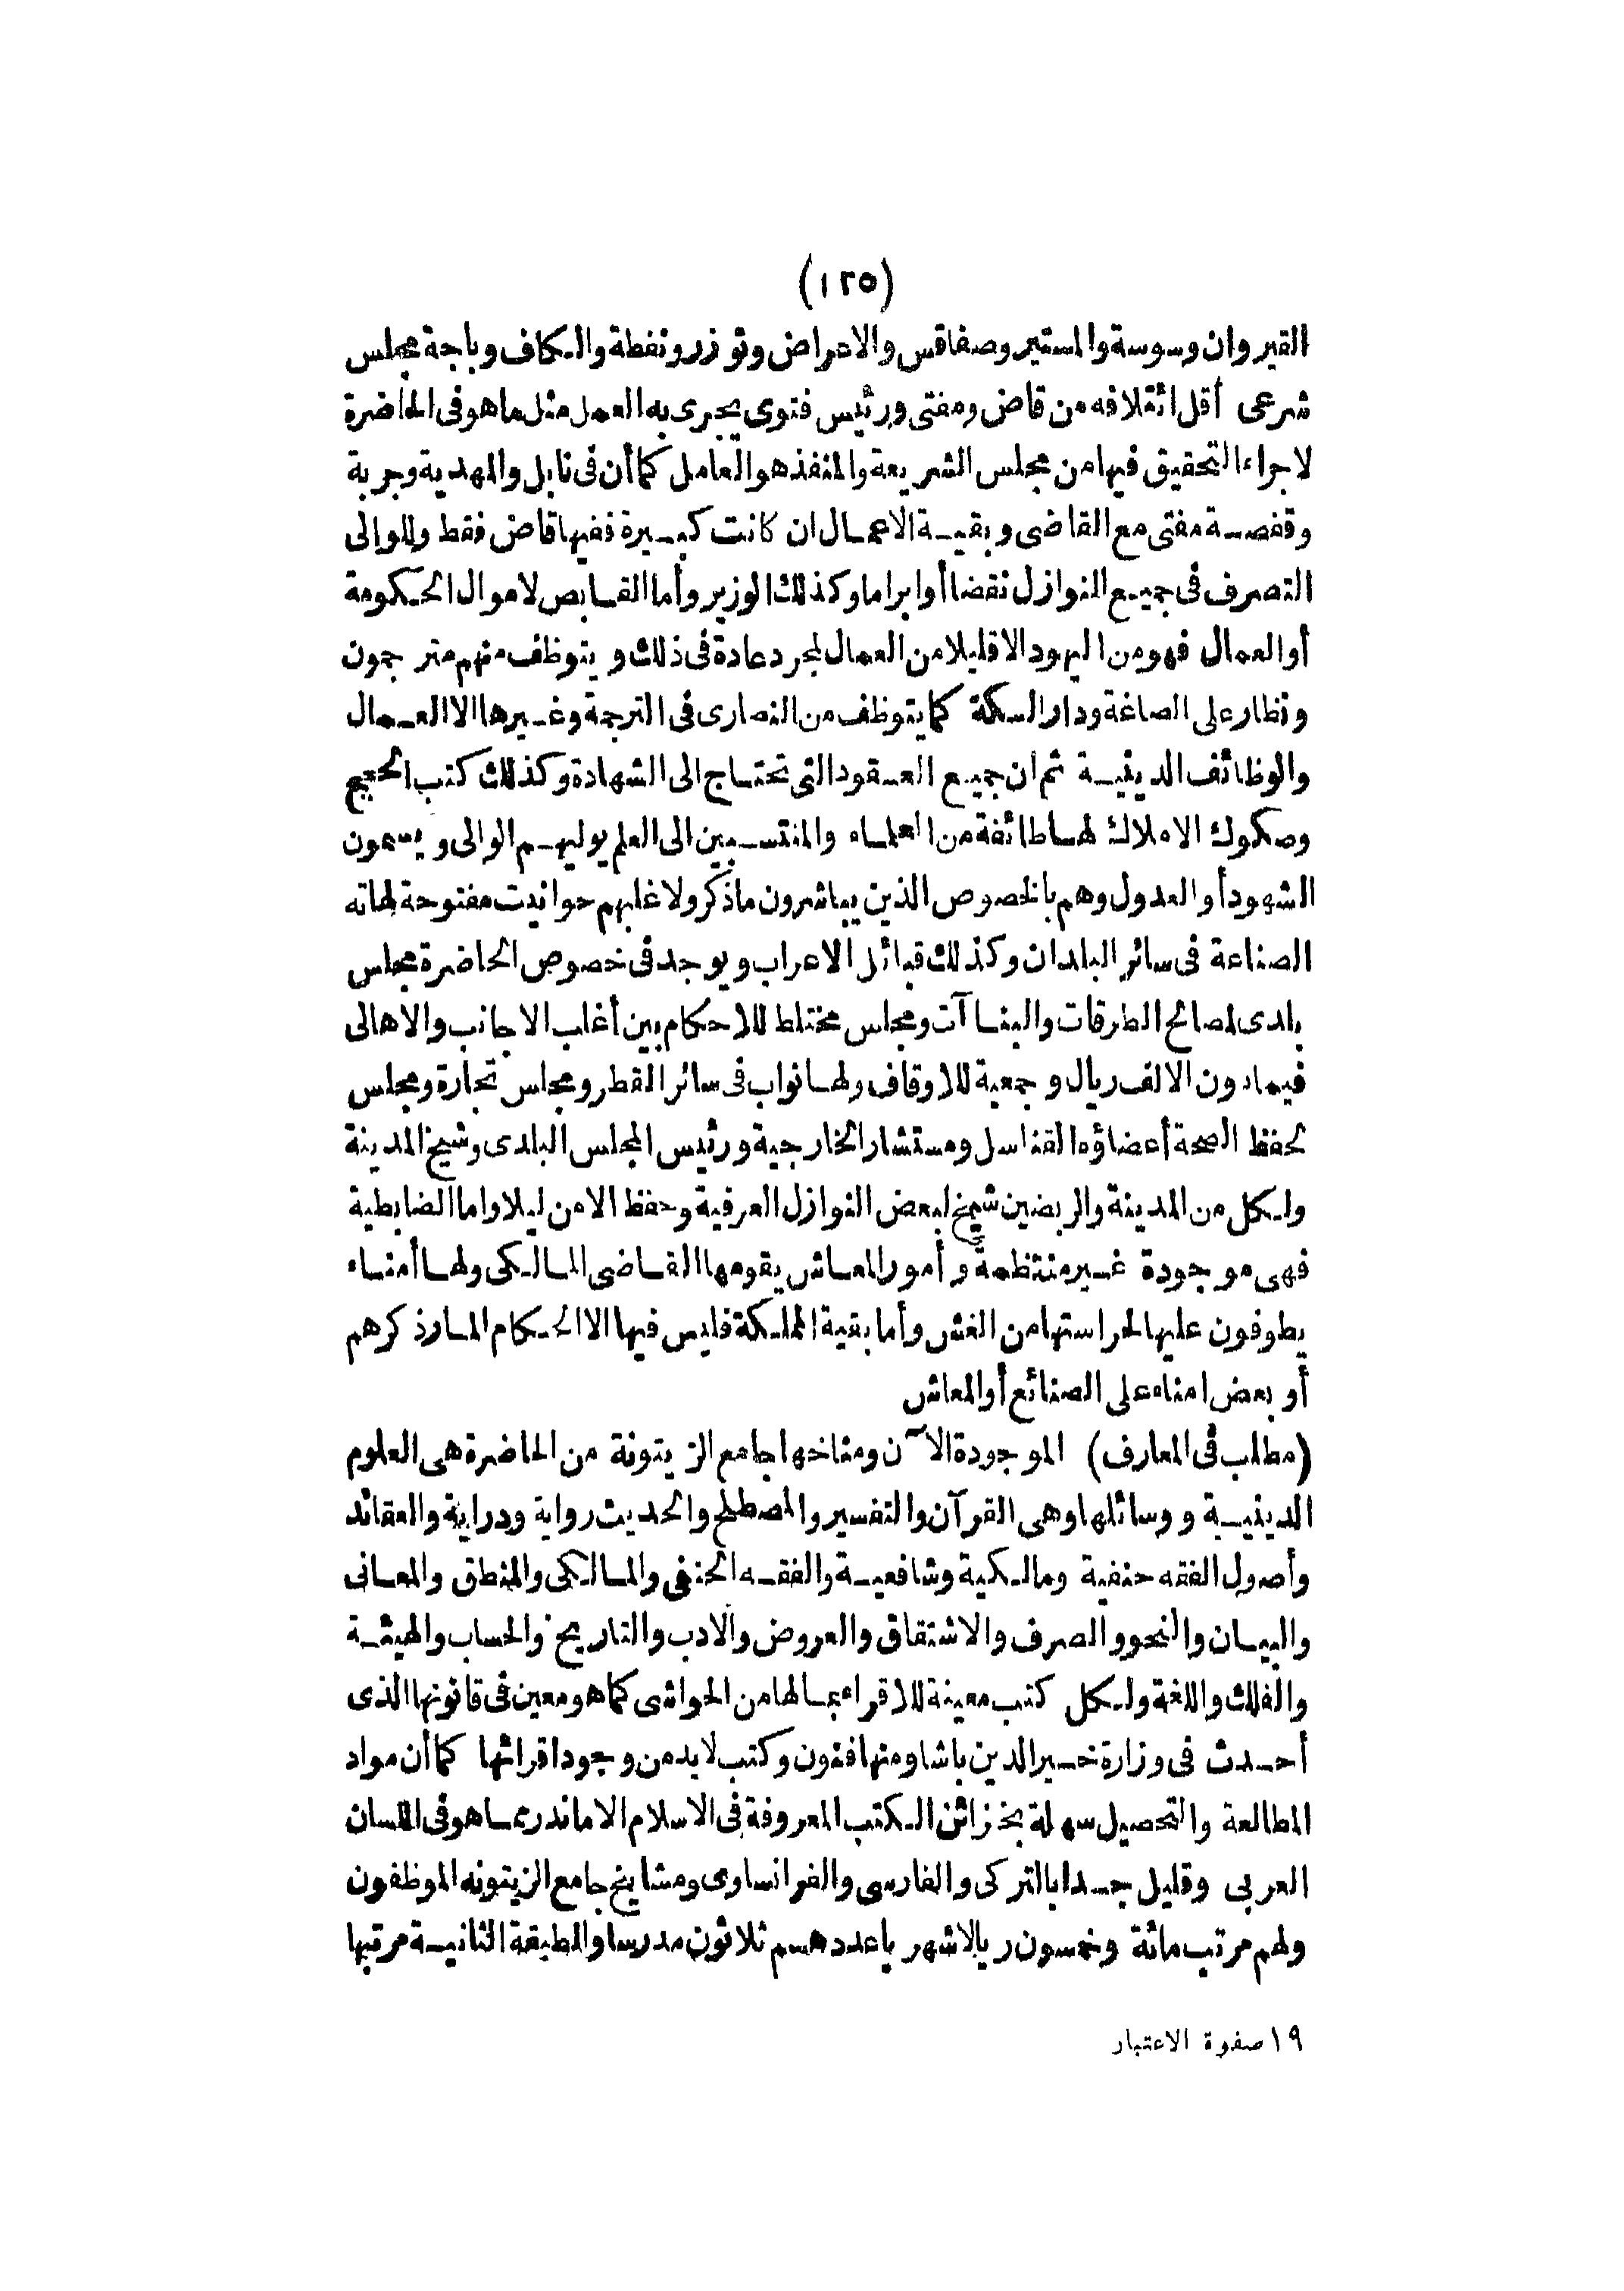 (١٢٥)
القيروان وسوسة والمستير وصفاقس والاعراض وتوزر ونفطة والكاف وباجة مجلس
شرعى أقل ائتلافه من قاض ومفتى ورئيس فتوى يجرى به العمل مثل ما هو فى الحاضرة
لاجراء التحقيق فيها من مجلس الشريعة والمنفذ هو العامل كما أن فى نابل والمهدية وجربة
وقفصة مفتى مع القاضى وبقية الاعمال ان كانت كبيرة ففيها قاض فقط وللوالى
التصرف فى جميع النوازل نقضا أو ابراما وكذلك الوزير وأما القابض لاموال الحكومة
أو العمال فهو من اليهود الا قليلا من العمال لمجرد عادة فى ذلك ويتوظف منهم مترجمون
ونظار على الصاغة ودار السكة كما يتوظف من النصارى فى الترجمة وغيرها الا العمال
والوظائف الدينية ثم ان جميع العقود التى تحتاج الى الشهادة وكذلك كتب الحجج
وصكوك الاملاك لها طائفة من العلماء والمنتسبين الى العلم يوليهم الوالى ويسمون
الشهود أو العدول وهم بالخصوص الذين يباشرون ما ذكر ولاغلبهم حوانيت مفتوحة لهاته
الصناعة فى سائر البلدان وكذلك قبائل الاعراب ويوجد فى خصوص الحاضرة مجلس
بلدى لمصالح الطرقات والبنا آت ومجلس مختلط للاحكام بين أغلب الاجانب والاهالى
فيما دون الالف ريال وجمعية للاوقاف ولها نواب فى سائر القطر ومجلس تجارة ومجلس
لحفظ الصحة أعضاؤه القناسل ومستشار الخارجية ورئيس المجلس البلدى وشيخ المدينة
ولكل من المدينة والربضين شيخ لبعض النوازل العرفية وحفظ الامن ليلا واما الضابطية
فهى موجودة غير منتظمة وأمور المعاش يقومها القاضى المالكى ولها أمناء
يطوفون عليها لحراستها من الغش وأما بقية المملكة فليس فيها الا الحكام المار ذكرهم
أو بعض امناء على الصنائع أو المعاش
(مطلب فى المعارف) الموجودة الآن ومناخها جامع الزيتونة من الحاضرة هى العلوم
الدينية ووسائلها وهى القرآن والتفسير والمصطلح والحديث رواية ودراية والعقائد
وأصول الفقه حنفية ومالكية وشافعية والفقه الحنفى والمالكى والمنطق والمعانى
والبيان والنحو والصرف والاشتقاق والعروض والادب والتاريخ والحساب والهيئة
والفلك واللغة ولكل كتب معينة للاقراء بمالها من الحواشى كما هو معين فى قانونها الذى
أحدث فى وزارة خير الدين باشا ومنها فنون وكتب لابد من وجود اقرائها كما أن مواد
المطالعة والتحصيل سهلة بخزائن الكتب المعروفة فى الاسلام الا ما ندر مما هو فى اللسان
العربى وقليل جدا بالتركى والفارسى والفرانساوى ومشايخ جامع الزيتونه الموظفون
ولهم مرتب مائة وخمسون ريالا شهريا عددهم ثلاثون مدرسا والطبقة الثانية مرتبها
١٩ صفوة الاعتبار